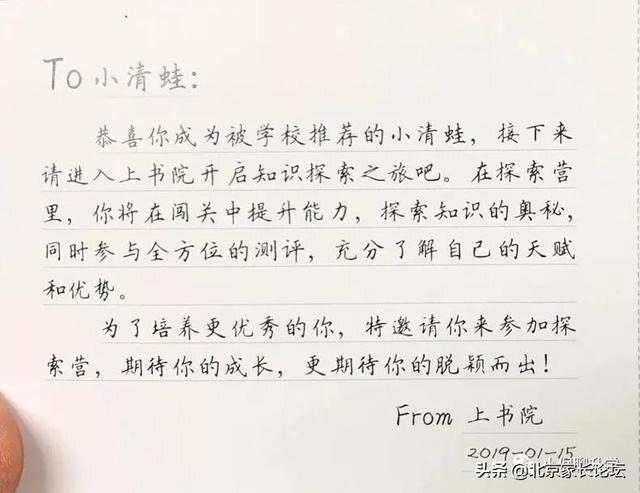 To 小清蛙：
恭喜你成为被学校推荐的小清蛙，接下来
请进入上书院开启知识探索之旅吧。在探索营
里，你将在闯关中提升能力，探索知识的奥秘，
同时参与全方位的测评，充分了解自己的天赋
和优势。
为了培养更优秀的你，特邀请你来参加探
索营，期待你的成长，更期待你的脱颖而出！
From 上书院
2019-01-15
头条@北京家长论坛